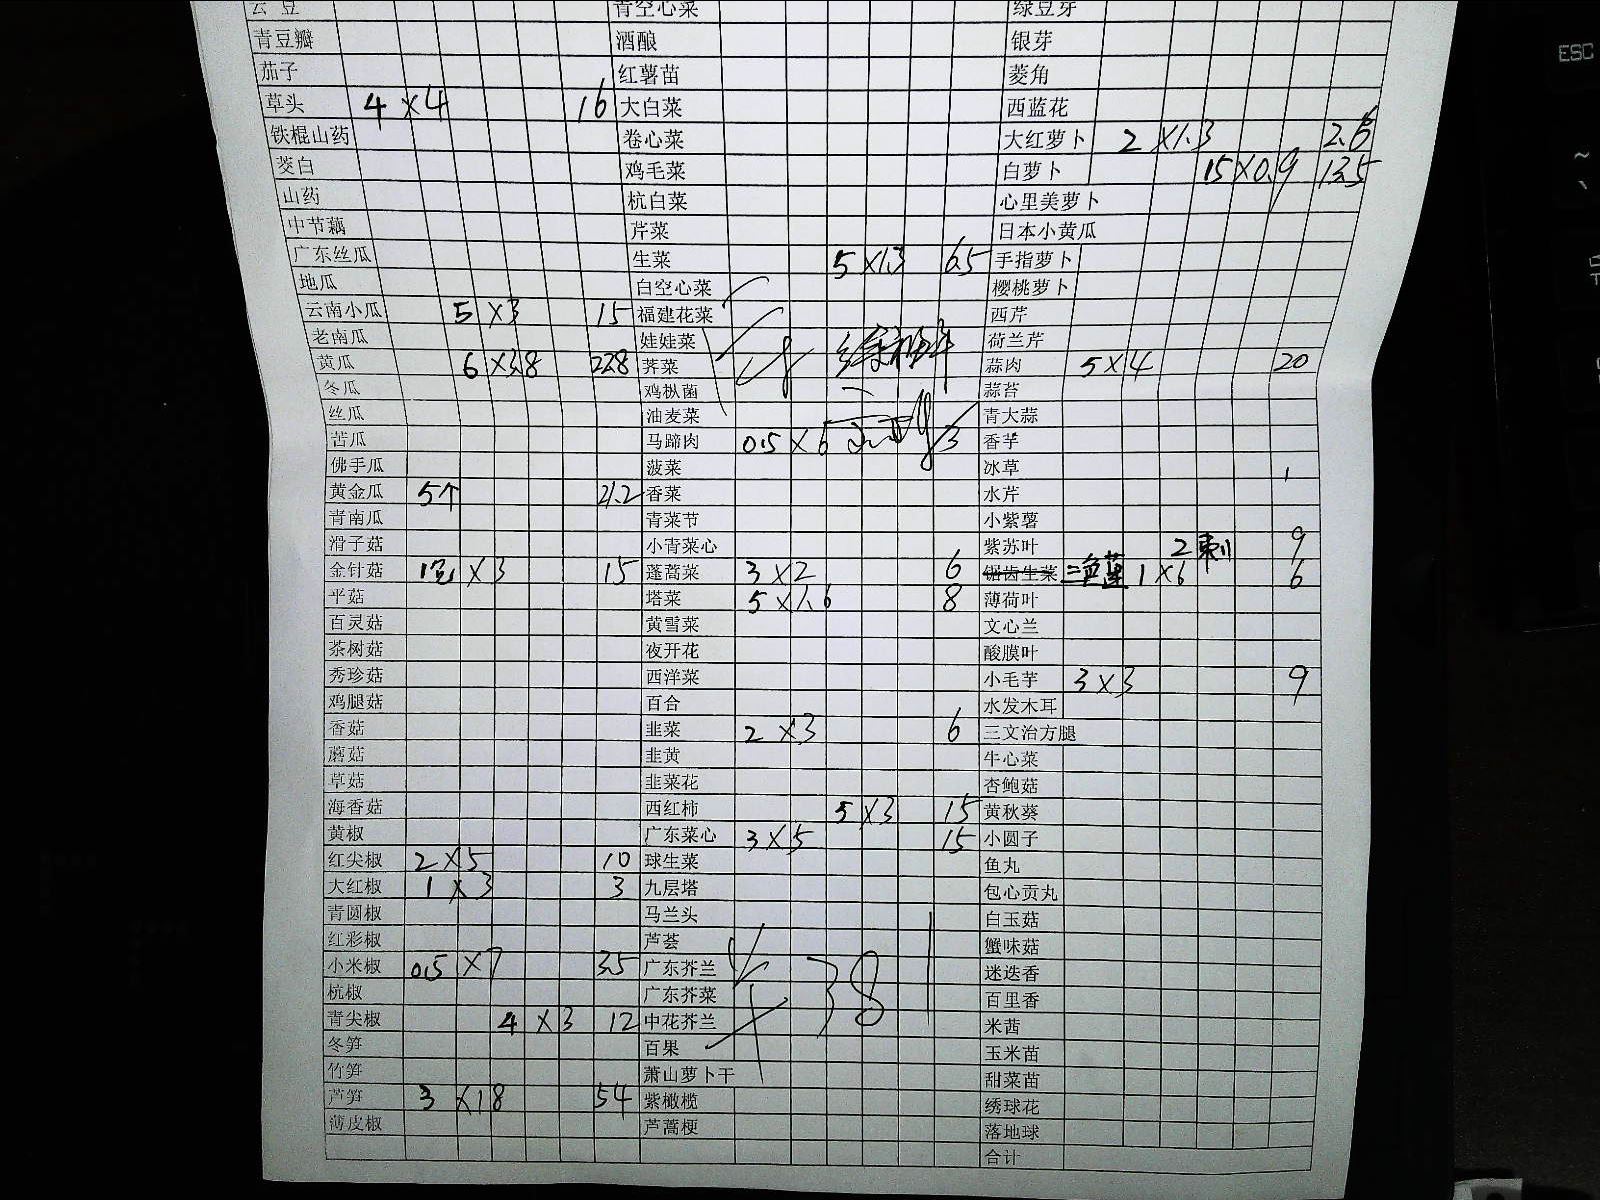 云豆 青空心菜 绿豆芽
青豆瓣 酒酿 银芽
茄子 红薯苗 菱角
草头 4 ×4 16 大白菜 西蓝花
铁棍山药 卷心菜 大红萝卜 2 ×1.3 2.6
茭白 鸡毛菜 白萝卜 15×0.9 13.5
山药 杭白菜 心里美萝卜
中节藕 芹菜 日本小黄瓜
广东丝瓜 生菜 5 ×1.3 6.5 手指萝卜
地瓜 白空心菜 樱桃萝卜
云南小瓜 5 ×3 15 福建花菜 西芹
老南瓜 娃娃菜 荷兰芹
黄瓜 6 ×3.8 22.8 荠菜 蒜肉 5 ×4 20
冬瓜 鸡枞菌 蒜苔
丝瓜 油麦菜 青大蒜
苦瓜 马蹄肉 0.5 ×6 3 香芋
佛手瓜 菠菜 冰草
黄金瓜 5个 21.2 香菜 水芹
青南瓜 青菜节 小紫薯
滑子菇 小青菜心 紫苏叶 2刺 9
金针菇 1包 ×3 15 蓬蒿菜 3 ×2 6 锯齿生菜 三色堇 1 ×6 6
平菇 塔菜 5 ×1.6 8 薄荷叶
百灵菇 黄雪菜 文心兰
茶树菇 夜开花 酸膜叶
秀珍菇 西洋菜 小毛芋 3 ×3 9
鸡腿菇 百合 水发木耳
香菇 韭菜 2 ×3 6 三文治方腿
蘑菇 韭黄 牛心菜
草菇 韭菜花 杏鲍菇
海香菇 西红柿 5 ×3 15 黄秋葵
黄椒 广东菜心 3 ×5 15 小圆子
红尖椒 2 ×5 10 球生菜 鱼丸
大红椒 1 ×3 3 九层塔 包心贡丸
青圆椒 马兰头 白玉菇
红彩椒 芦荟 蟹味菇
小米椒 0.5 ×7 3.5 广东芥兰 38 迷迭香
杭椒 广东芥菜 百里香
青尖椒 4 ×3 12 中花芥兰 米茜
冬笋 百果 玉米苗
竹笋 萧山萝卜干 甜菜苗
芦笋 3 ×18 54 紫橄榄 绣球花
薄皮椒 芦蒿梗 落地球
合计
ESC